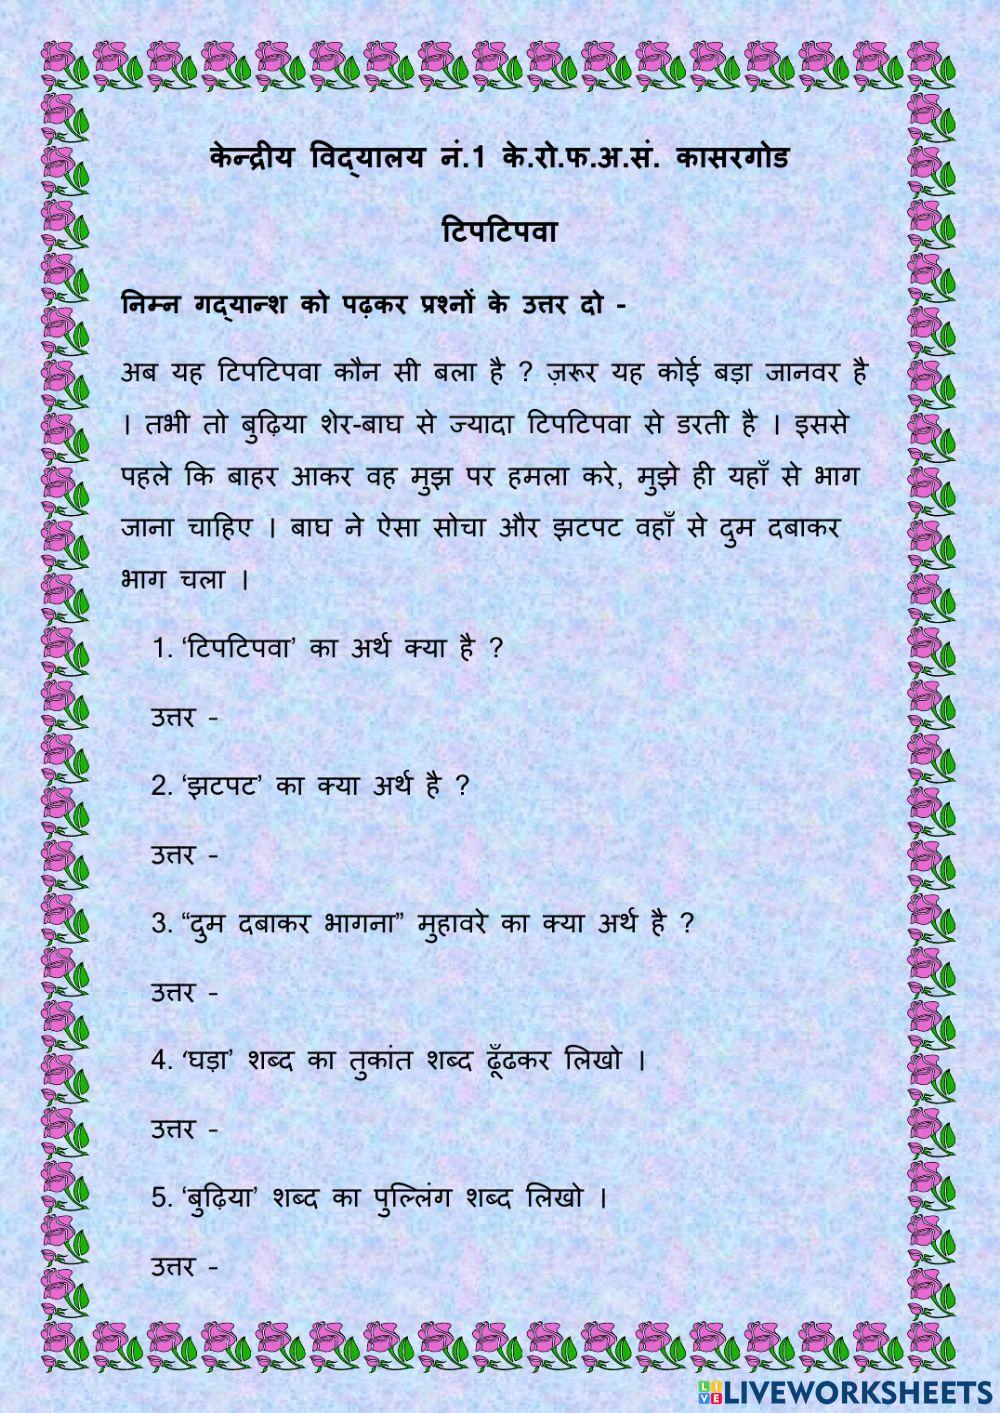 केन्द्रीय विद्‌यालय नं.1 के.रो.फ.अ.सं. कासरगोड
टिपटिपवा
निम्न गद्‌यान्श को पढ़कर प्रश्नों के उत्तर दो -
अब यह टिपटिपवा कौन सी बला है ? ज़रूर यह कोई बड़ा जानवर है
। तभी तो बुढ़िया शेर-बाघ से ज्यादा टिपटिपवा से डरती है । इससे
पहले कि बाहर आकर वह मुझ पर हमला करे, मुझे ही यहाँ से भाग
जाना चाहिए । बाघ ने ऐसा सोचा और झटपट वहाँ से दुम दबाकर
भाग चला ।
1. ‘टिपटिपवा’ का अर्थ क्या है ?
उत्तर -
2. ‘झटपट’ का क्या अर्थ है ?
उत्तर -
3. “दुम दबाकर भागना” मुहावरे का क्या अर्थ है ?
उत्तर -
4. ‘घड़ा’ शब्द का तुकांत शब्द ढूँढकर लिखो ।
उत्तर -
5. ‘बुढ़िया’ शब्द का पुल्लिंग शब्द लिखो ।
उत्तर -
LIVE LIVEWORKSHEETS